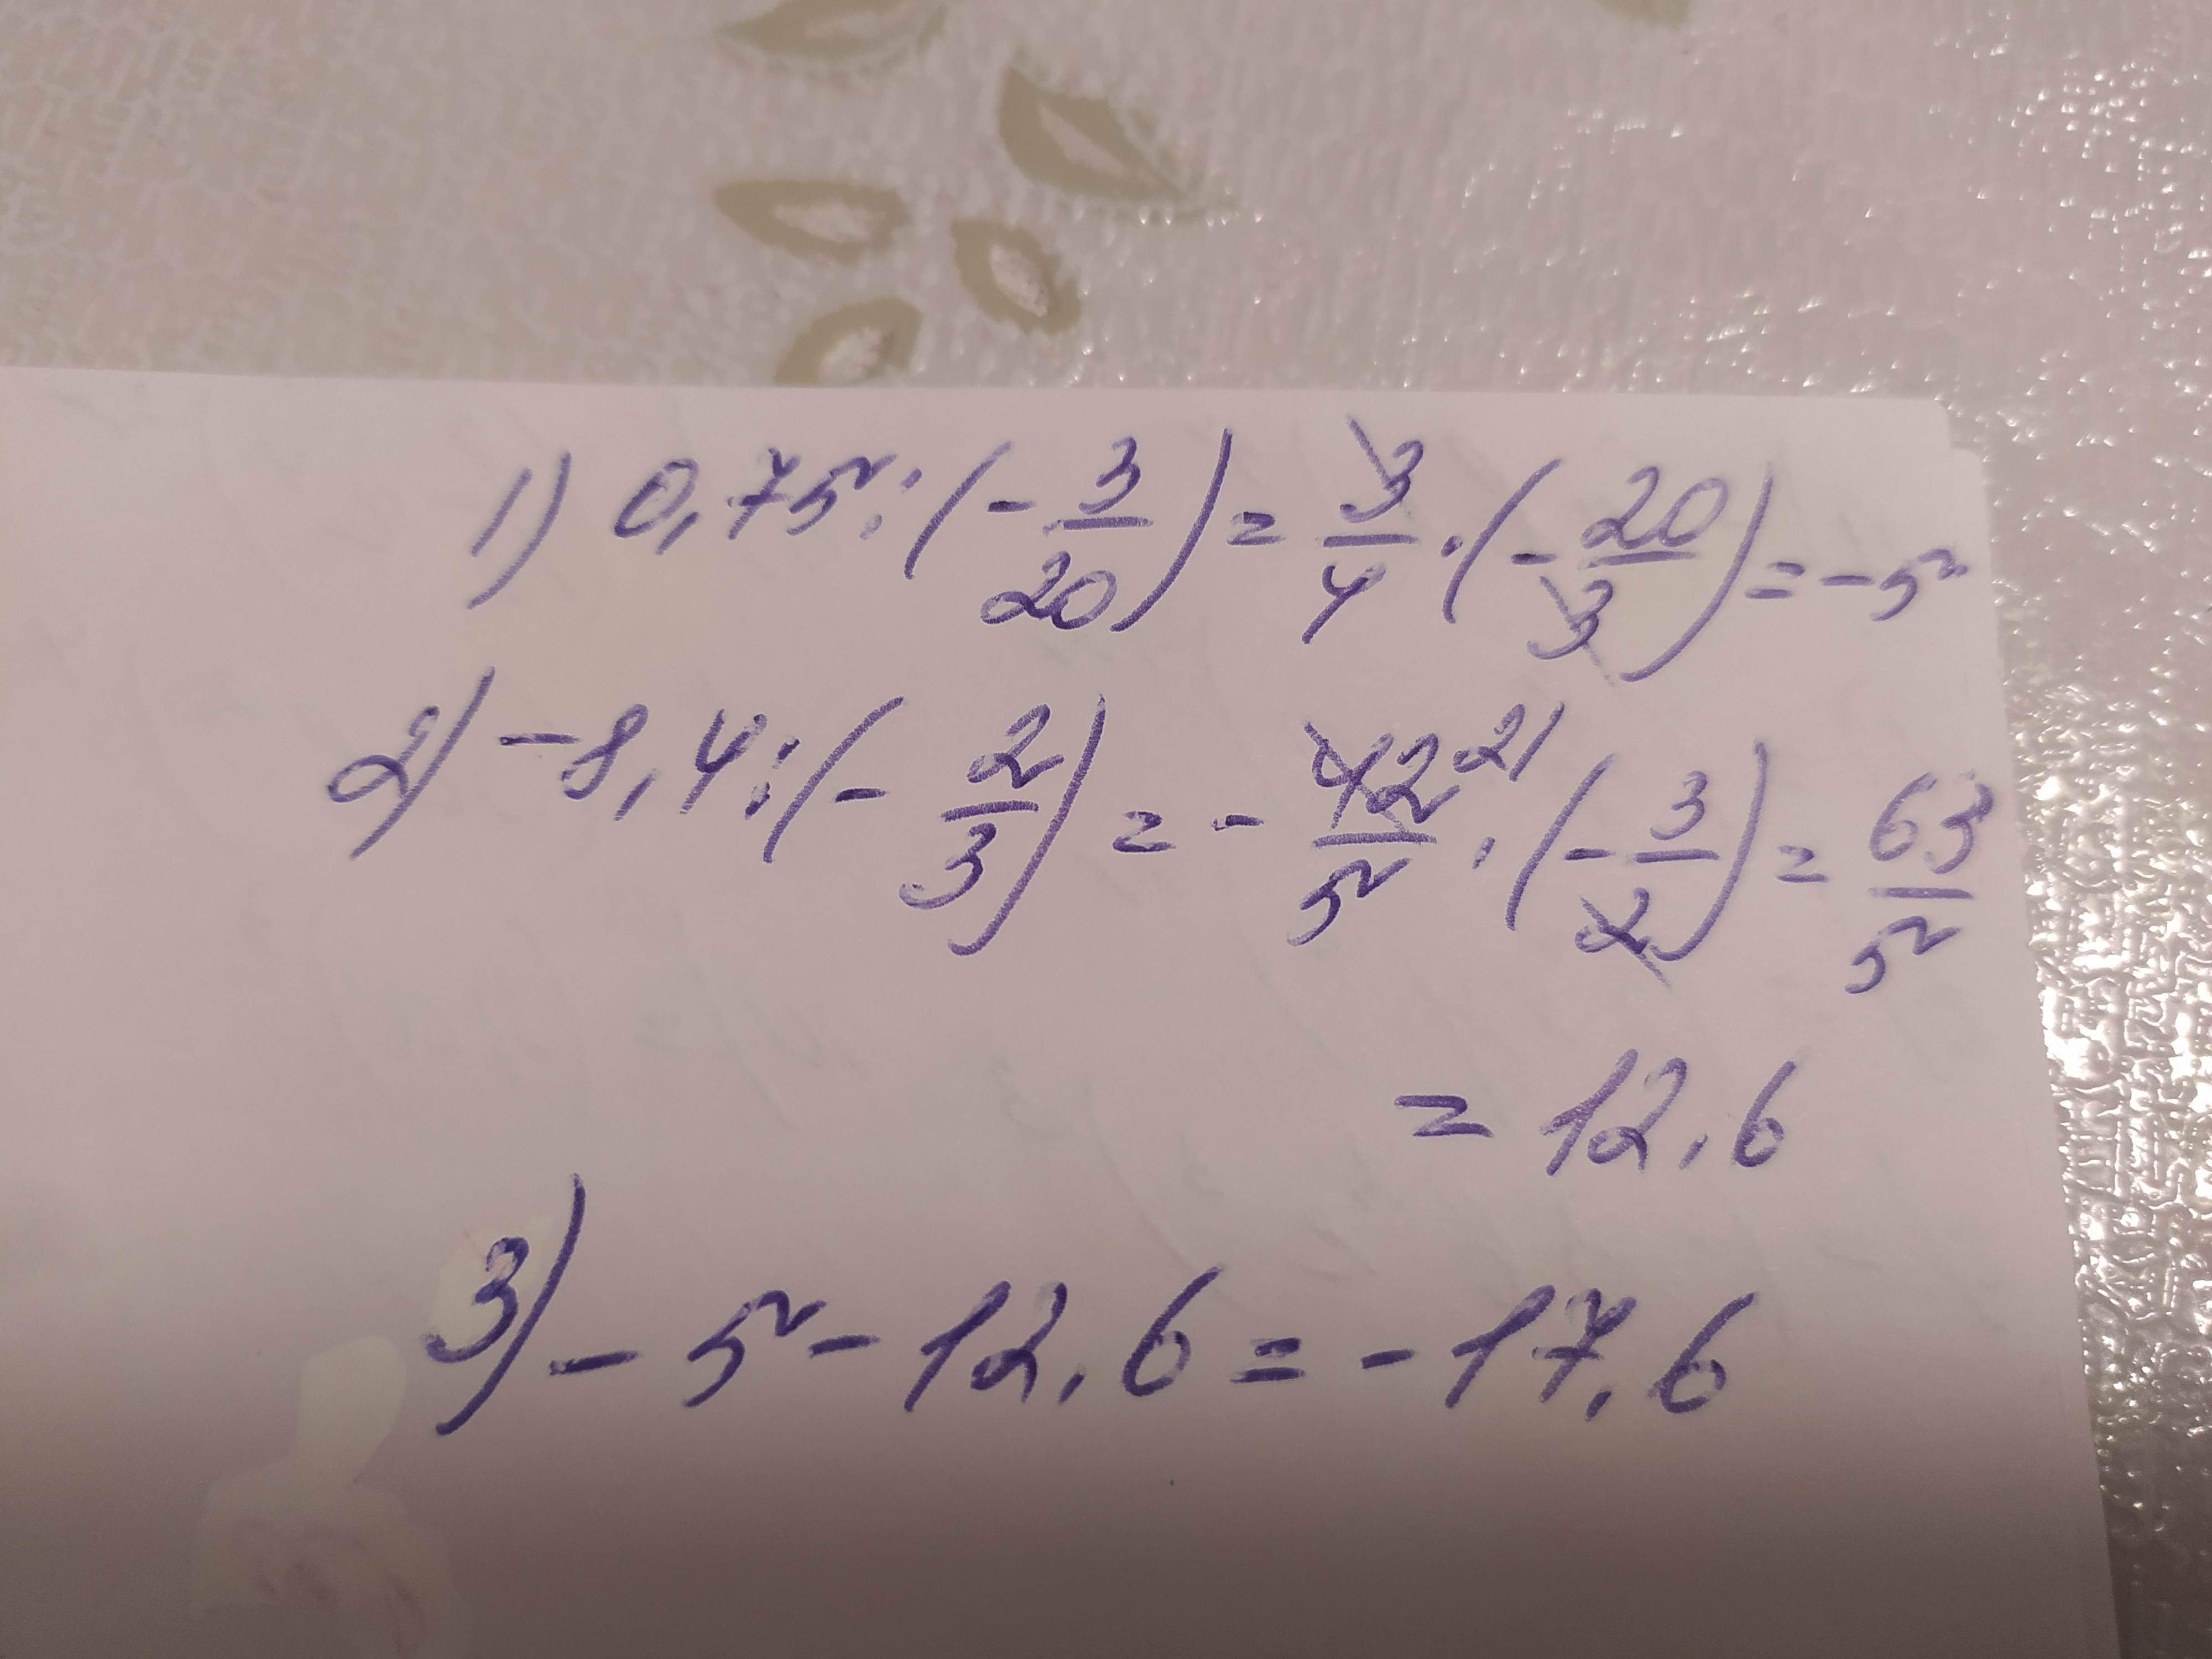 1) 0,75 : (- 3/20) = 3/4 · (- 20/3) = -5
2) -8,4 : (- 2/3) = - 42/5 21 · (- 3/2) = 63/5
= 12,6
3) -5 - 12,6 = -17,6